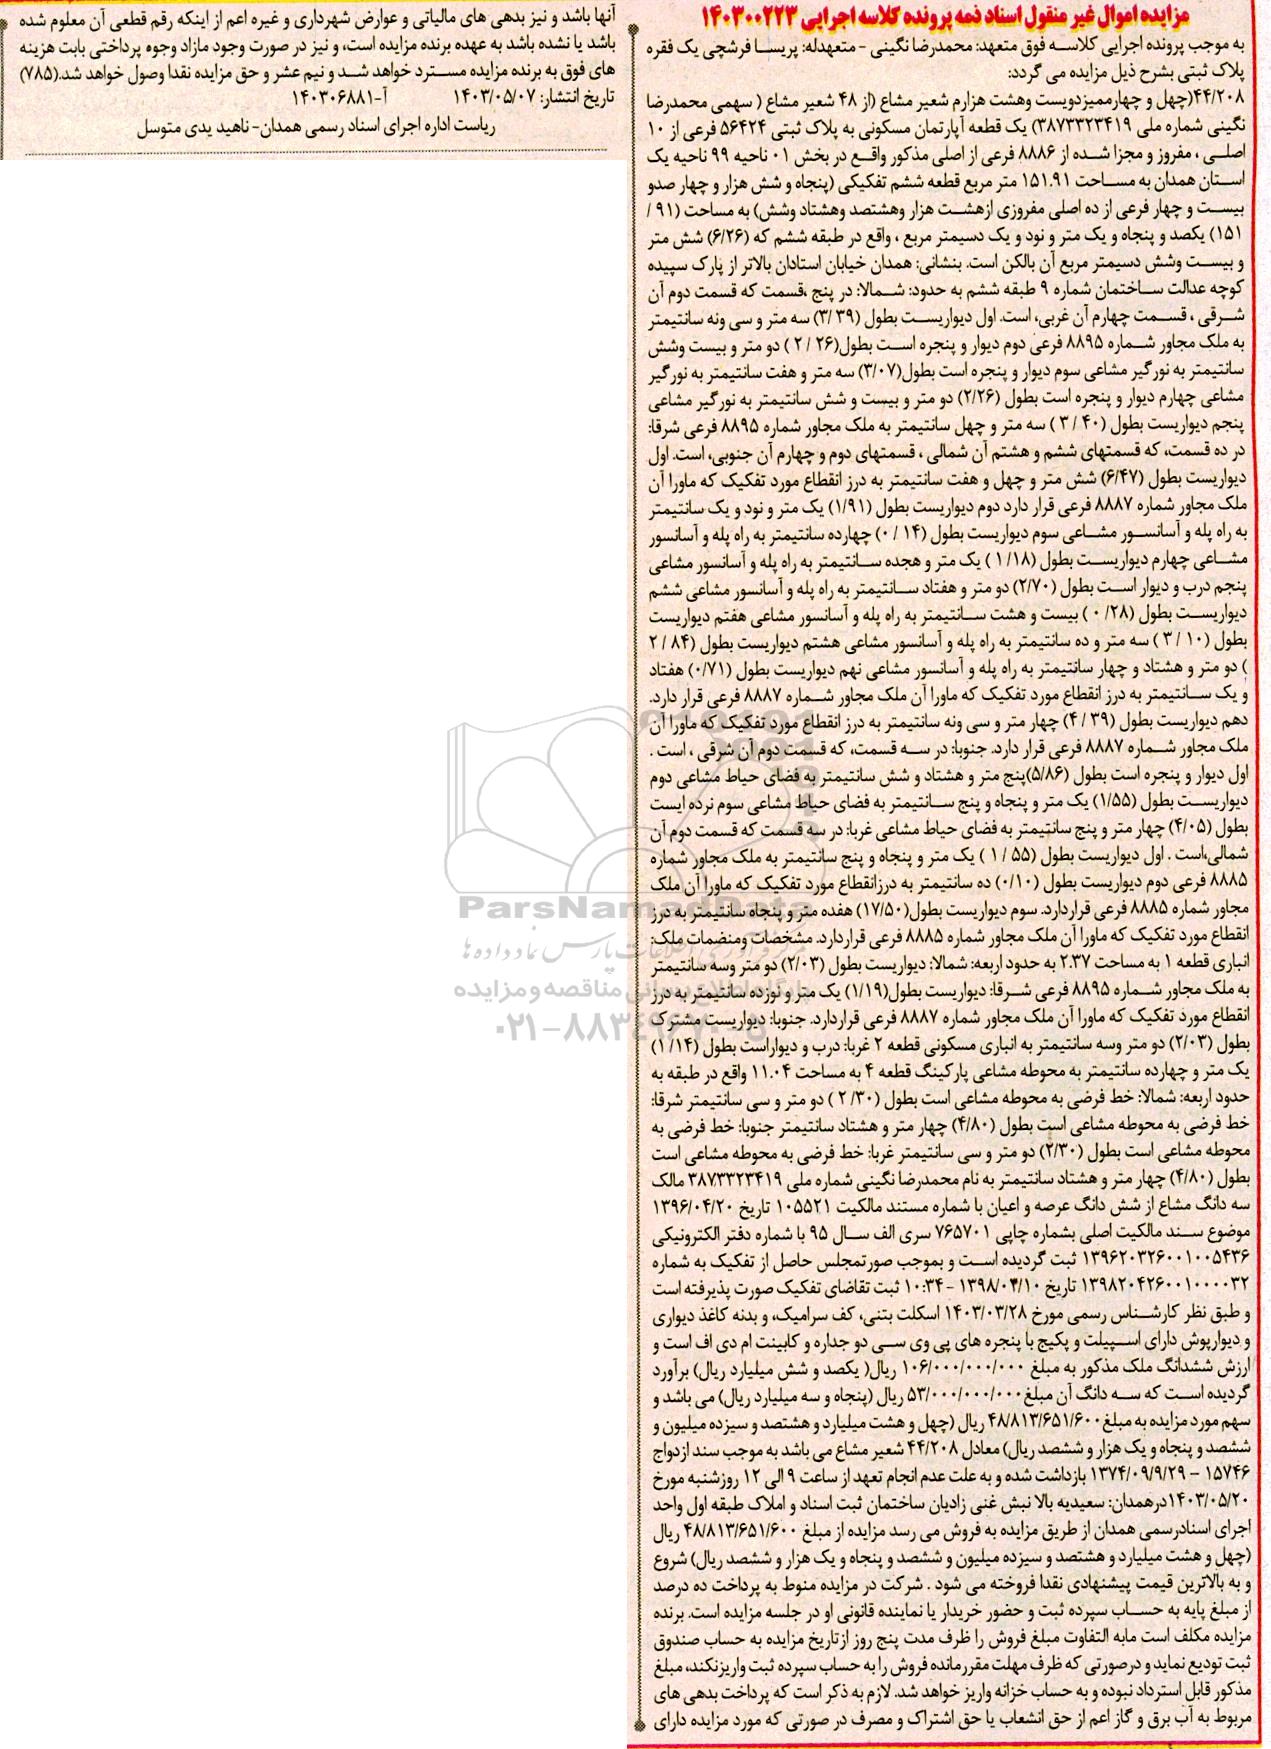 مزایده اموال غیر منقول اسناد ذمه پرونده کلاسه اجرایی ۱۴۰۳۰۰۲۲۳
به موجب پرونده اجرایی کلاسه فوق متعهد: محمدرضا نگینی - متعهدله: پریسا فرشچی یک فقره
پلاک ثبتی بشرح ذیل مزایده می گردد:
۴۴/۲۰۸(چهل و چهارممیزدویست وهشت هزارم شعیر مشاع (از ۴۸ شعیر مشاع ( سهمی محمدرضا
نگینی شماره ملی ۳۸۷۳۳۲۳۴۱۹) یک قطعه آپارتمان مسکونی به پلاک ثبتی ۵۶۴۲۴ فرعی از ۱۰
اصلی ، مفروز و مجزا شده از ۸۸۸۶ فرعی از اصلی مذکور واقع در بخش ۰۱ ناحیه ۹۹ ناحیه یک
استان همدان به مساحت ۱۵۱.۹۱ متر مربع قطعه ششم تفکیکی (پنجاه و شش هزار و چهار صدو
بیست و چهار فرعی از ده اصلی مفروزی ازهشت هزار وهشتصد وهشتاد وشش) به مساحت (۹۱ /
۱۵۱) یکصد و پنجاه و یک متر و نود و یک دسیمتر مربع ، واقع در طبقه ششم که (۶/۲۶) شش متر
و بیست وشش دسیمتر مربع آن بالکن است. بنشانی: همدان خیابان استادان بالاتر از پارک سپیده
کوچه عدالت ساختمان شماره ۹ طبقه ششم به حدود: شمالا: در پنج ،قسمت که قسمت دوم آن
شرقی ، قسمت چهارم آن غربی، است. اول دیواریست بطول (۳۹ /۳) سه متر و سی ونه سانتیمتر
به ملک مجاور شماره ۸۸۹۵ فرعی دوم دیوار و پنجره است بطول(۲۶ / ۲ ) دو متر و بیست وشش
سانتیمتر به نورگیر مشاعی سوم دیوار و پنجره است بطول(۳/۰۷) سه متر و هفت سانتیمتر به نورگیر
مشاعی چهارم دیوار و پنجره است بطول (۲/۲۶) دو متر و بیست و شش سانتیمتر به نورگیر مشاعی
پنجم دیواریست بطول (۴۰ / ۳ ) سه متر و چهل سانتیمتر به ملک مجاور شماره ۸۸۹۵ فرعی شرقا:
در ده قسمت، که قسمتهای ششم و هشتم آن شمالی ، قسمتهای دوم و چهارم آن جنوبی، است. اول
دیواریست بطول (۶/۴۷) شش متر و چهل و هفت سانتیمتر به درز انقطاع مورد تفکیک که ماورا آن
ملک مجاور شماره ۸۸۸۷ فرعی قرار دارد دوم دیواریست بطول (۱/۹۱) یک متر و نود و یک سانتیمتر
به راه پله و آسانسور مشاعی سوم دیواریست بطول (۱۴ / ۰) چهارده سانتیمتر به راه پله و آسانسور
مشاعی چهارم دیواریست بطول (۱۸/ ۱ ) یک متر و هجده سانتیمتر به راه پله و آسانسور مشاعی
پنجم درب و دیوار است بطول (۲/۷۰) دو متر و هفتاد سانتیمتر به راه پله و آسانسور مشاعی ششم
دیواریست بطول (۲۸/ ۰ ) بیست و هشت سانتیمتر به راه پله و آسانسور مشاعی هفتم دیواریست
بطول (۱۰ / ۳ ) سه متر و ده سانتیمتر به راه پله و آسانسور مشاعی هشتم دیواریست بطول (۸۴ / ۲
) دو متر و هشتاد و چهار سانتیمتر به راه پله و آسانسور مشاعی نهم دیواریست بطول (۰/۷۱) هفتاد
و یک سانتیمتر به درز انقطاع مورد تفکیک که ماورا آن ملک مجاور شماره ۸۸۸۷ فرعی قرار دارد.
دهم دیواریست بطول (۳۹ / ۴) چهار متر و سی ونه سانتیمتر به درز انقطاع مورد تفکیک که ماورا آن
ملک مجاور شماره ۸۸۸۷ فرعی قرار دارد. جنوبا: در سه قسمت، که قسمت دوم آن شرقی ، است .
اول دیوار و پنجره است بطول (۵/۸۶)پنج متر و هشتاد و شش سانتیمتر به فضای حیاط مشاعی دوم
دیواریست بطول (۱/۵۵) یک متر و پنجاه و پنج سانتیمتر به فضای حیاط مشاعی سوم نرده ایست
بطول (۴/۰۵) چهار متر و پنج سانتیمتر به فضای حیاط مشاعی غربا: در سه قسمت که قسمت دوم آن
شمالی،است . اول دیواریست بطول (۵۵ / ۱ ) یک متر و پنجاه و پنج سانتیمتر به ملک مجاور شماره
۸۸۸۵ فرعی دوم دیواریست بطول (۰/۱۰) ده سانتیمتر به درزانقطاع مورد تفکیک که ماورا آن ملک
مجاور شماره ۸۸۸۵ فرعی قراردارد. سوم دیواریست بطول(۱۷/۵۰) هفده متر و پنجاه سانتیمتر به درز
انقطاع مورد تفکیک که ماورا آن ملک مجاور شماره ۸۸۸۵ فرعی قراردارد. مشخصات ومنضمات ملک:
انباری قطعه ۱ به مساحت ۲.۳۷ به حدود اربعه: شمالا: دیواریست بطول (۲/۰۳) دو متر وسه سانتیمتر
به ملک مجاور شماره ۸۸۹۵ فرعی شرقا: دیواریست بطول(۱/۱۹) یک متر و نوزده سانتیمتر به درز
انقطاع مورد تفکیک که ماورا آن ملک مجاور شماره ۸۸۸۷ فرعی قراردارد. جنوبا: دیواریست مشترک
بطول (۲/۰۳) دو متر وسه سانتیمتر به انباری مسکونی قطعه ۲ غربا: درب و دیواراست بطول (۱/۱۴)
یک متر و چهارده سانتیمتر به محوطه مشاعی پارکینگ قطعه ۴ به مساحت ۱۱.۰۴ واقع در طبقه به
حدود اربعه: شمالا: خط فرضی به محوطه مشاعی است بطول (۳۰/ ۲ ) دو متر و سی سانتیمتر شرقا:
خط فرضی به محوطه مشاعی است بطول (۴/۸۰) چهار متر و هشتاد سانتیمتر جنوبا: خط فرضی به
محوطه مشاعی است بطول (۲/۳۰) دو متر و سی سانتیمتر غربا: خط فرضی به محوطه مشاعی است
بطول (۴/۸۰) چهار متر و هشتاد سانتیمتر به نام محمدرضا نگینی شماره ملی ۳۸۷۳۳۲۳۴۱۹ مالک
سه دانگ مشاع از شش دانگ عرصه و اعیان با شماره مستند مالکیت ۱۰۵۵۲۱ تاریخ ۱۳۹۶/۰۴/۲۰
موضوع سند مالکیت اصلی بشماره چاپی ۷۶۵۷۰۱ سری الف سال ۹۵ با شماره دفتر الکترونیکی
۱۳۹۶۲۰۳۲۶۰۰۱۰۰۵۴۳۶ ثبت گردیده است و بموجب صورتمجلس حاصل از تفکیک به شماره
۱۳۹۸۲۰۴۲۶۰۰۱۰۰۰۰۳۲ تاریخ ۱۳۹۸/۰۴/۱۰ - ۱۰:۳۴ ثبت تقاضای تفکیک صورت پذیرفته است
و طبق نظر کارشناس رسمی مورخ ۱۴۰۳/۰۳/۲۸ اسکلت بتنی، کف سرامیک، و بدنه کاغذ دیواری
و دیوارپوش دارای اسپیلت و پکیج با پنجره های پی وی سی دو جداره و کابینت ام دی اف است و
ارزش ششدانگ ملک مذکور به مبلغ ۱۰۶/۰۰۰/۰۰۰/۰۰۰ ریال( یکصد و شش میلیارد ریال) برآورد
گردیده است که سه دانگ آن مبلغ۵۳/۰۰۰/۰۰۰/۰۰۰ ریال (پنجاه و سه میلیارد ریال) می باشد و
سهم مورد مزایده به مبلغ۴۸/۸۱۳/۶۵۱/۶۰۰ ریال (چهل و هشت میلیارد و هشتصد و سیزده میلیون و
ششصد و پنجاه و یک هزار و ششصد ریال) معادل ۴۴/۲۰۸ شعیر مشاع می باشد به موجب سند ازدواج
۱۵۷۴۶ - ۱۳۷۴/۰۹/۹/۲۹ بازداشت شده و به علت عدم انجام تعهد از ساعت ۹ الی ۱۲ روزشنبه مورخ
۱۴۰۳/۰۵/۲۰درهمدان: سعیدیه بالا نبش غنی زادیان ساختمان ثبت اسناد و املاک طبقه اول واحد
اجرای اسنادرسمی همدان از طریق مزایده به فروش می رسد مزایده از مبلغ ۴۸/۸۱۳/۶۵۱/۶۰۰ ریال
(چهل و هشت میلیارد و هشتصد و سیزده میلیون و ششصد و پنجاه و یک هزار و ششصد ریال) شروع
و به بالاترین قیمت پیشنهادی نقدا فروخته می شود . شرکت در مزایده منوط به پرداخت ده درصد
از مبلغ پایه به حساب سپرده ثبت و حضور خریدار یا نماینده قانونی او در جلسه مزایده است. برنده
مزایده مکلف است مابه التفاوت مبلغ فروش را ظرف مدت پنج روز ازتاریخ مزایده به حساب صندوق
ثبت تودیع نماید و درصورتی که ظرف مهلت مقررمانده فروش را به حساب سپرده ثبت واریزنکند، مبلغ
مذکور قابل استرداد نبوده و به حساب خزانه واریز خواهد شد. لازم به ذکر است که پرداخت بدهی های
مربوط به آب برق و گاز اعم از حق انشعاب یا حق اشتراک و مصرف در صورتی که مورد مزایده دارای
آنها باشد و نیز بدهی های مالیاتی و عوارض شهرداری و غیره اعم از اینکه رقم قطعی آن معلوم شده
باشد یا نشده باشد به عهده برنده مزایده است، و نیز در صورت وجود مازاد وجوه پرداختی بابت هزینه
های فوق به برنده مزایده مسترد خواهد شد و نیم عشر و حق مزایده نقدا وصول خواهد شد.(۷۸۵)
تاریخ انتشار: ۱۴۰۳/۰۵/۰۷ آ-۱۴۰۳۰۶۸۸۱
ریاست اداره اجرای اسناد رسمی همدان- ناهید یدی متوسل
ParsNamadData
مرکز فرآوری اطلاعات پارس نماد داده ها
پایگاه اطلاع رسانی مناقصه و مزایده
۰۲۱-۸۸۳۴۹۶۷۰-۵